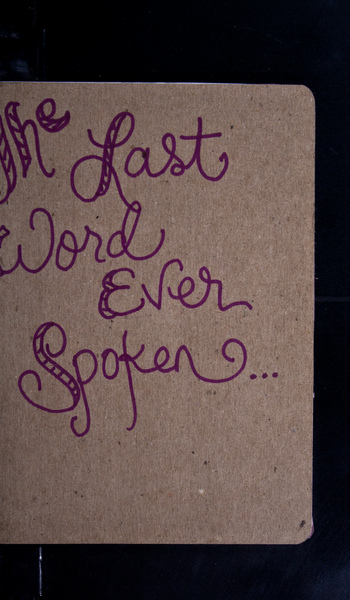 The Last
Word
Ever
Spoken...